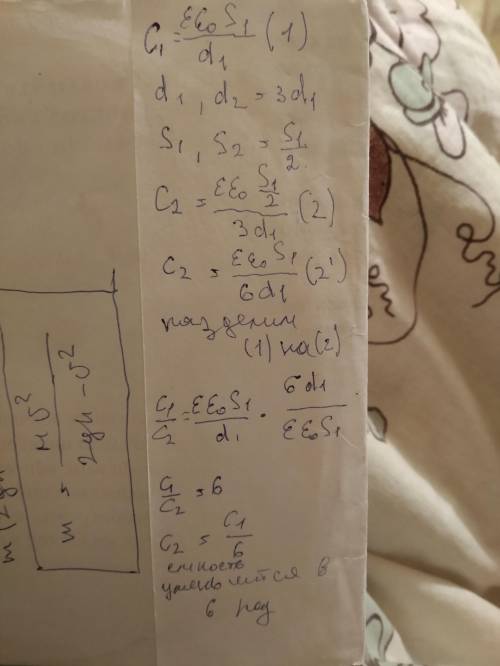 C₁ = εε₀S₁/d₁ (1)
d₁, d₂ = 3d₁
S₁, S₂ = S₁/2
C₂ = εε₀ (S₁/2)/3d₁ (2)
C₂ = εε₀S₁/6d₁ (2')
разделим
(1) на (2')
C₁/C₂ = εε₀S₁/d₁ · 6d₁/εε₀S₁
C₁/C₂ = 6
C₂ = C₁/6
емкость
уменьшится в
6 раз
m = Mυ²/2gh - υ²